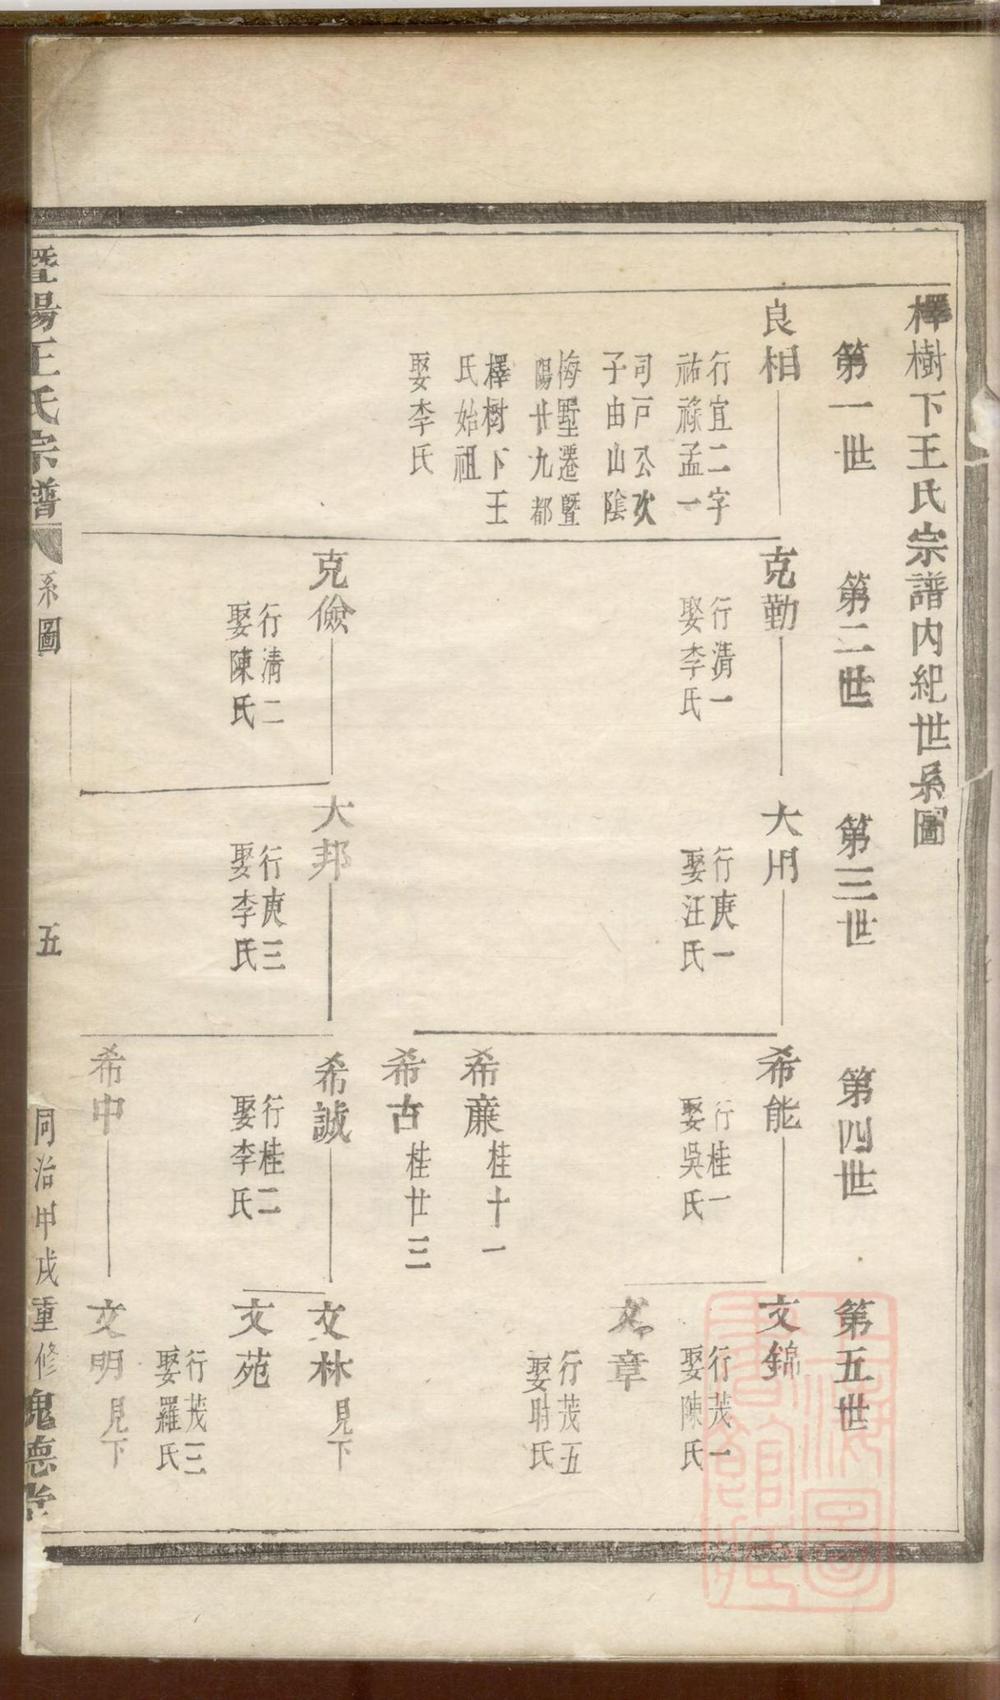 檡樹下王氏宗譜內紀世系圖
第一世
第二世
第三世
第四世
第五世
良相
行宜二字
祐祿孟一
司戶公次
子由山陰
梅墅遷暨
陽廿九都
檡樹下王
氏始祖
娶李氏
克勤
行清一
娶李氏
克儉
行清二
娶陳氏
大用
行庚一
娶汪氏
大邦
行庚三
娶李氏
希能
行桂一
娶吳氏
希薕
桂十一
希古
桂廿三
希誠
行桂二
娶李氏
希中
文錦
行茂一
娶陳氏
文章
行茂五
娶氏
文林
見下
文苑
行茂三
娶羅氏
文明
見下
暨陽王氏宗譜
系圖
五
同治甲戌重修
槐德堂
上海圖書館藏